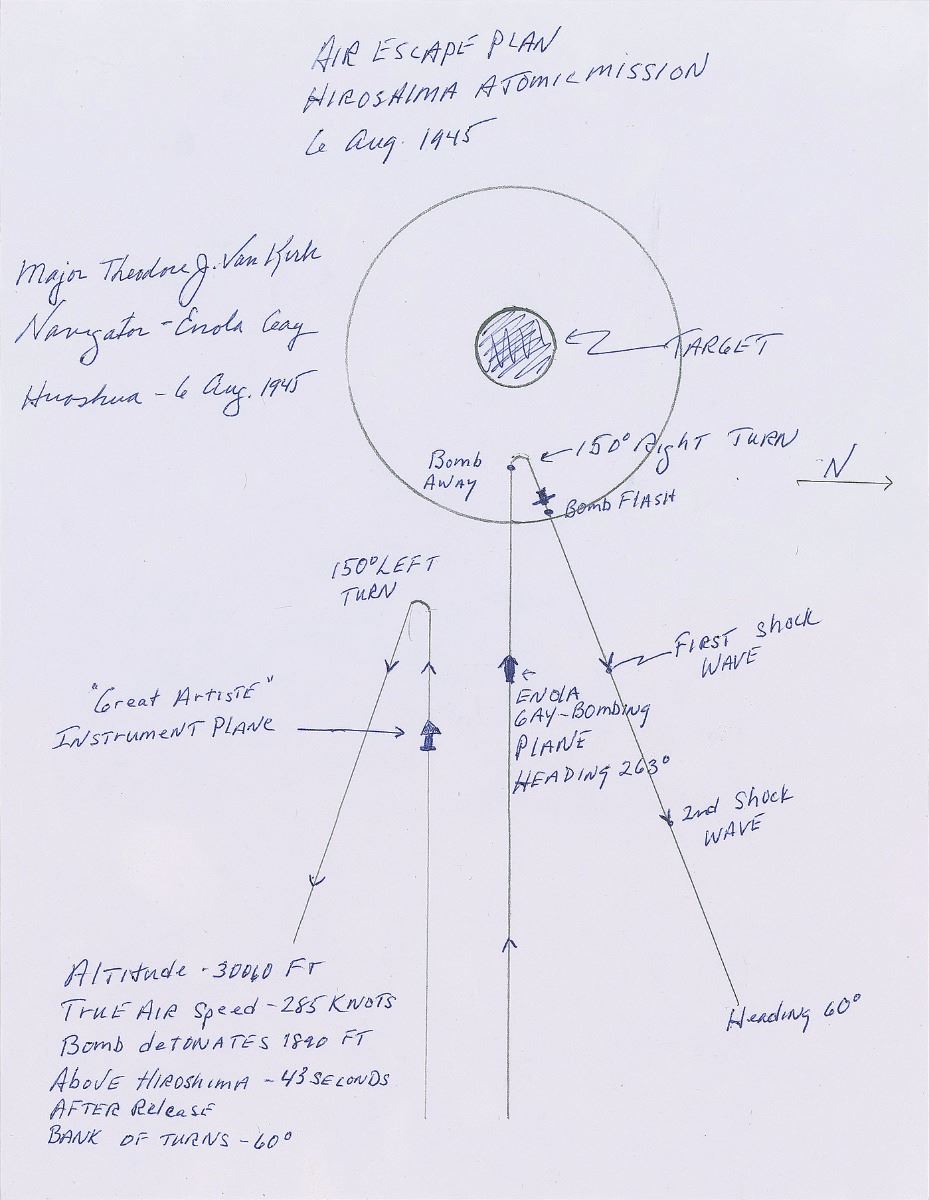 AIR ESCAPE PLAN
HIROSHIMA ATOMIC MISSION
6 Aug. 1945
Major Theodore J. Van Kirk
Navigator - Enola Gay
Hiroshima - 6 Aug. 1945
TARGET
150° Right TURN
Bomb
AWAY
N
Bomb FLASH
150° LEFT
TURN
FIRST Shock
WAVE
"Great ArtistE"
INSTRUMENT PLANE
ENOLA
GAY-BOMBING
PLANE
HEADING 263°
2nd Shock
WAVE
Altitude - 30060 FT
TRUE AIR Speed - 285 KNOTS
Bomb detONATES 1890 FT
Above HIROSHIMA - 43 SECONDS
AFTER Release
BANK OF TURNS - 60°
Heading 60°